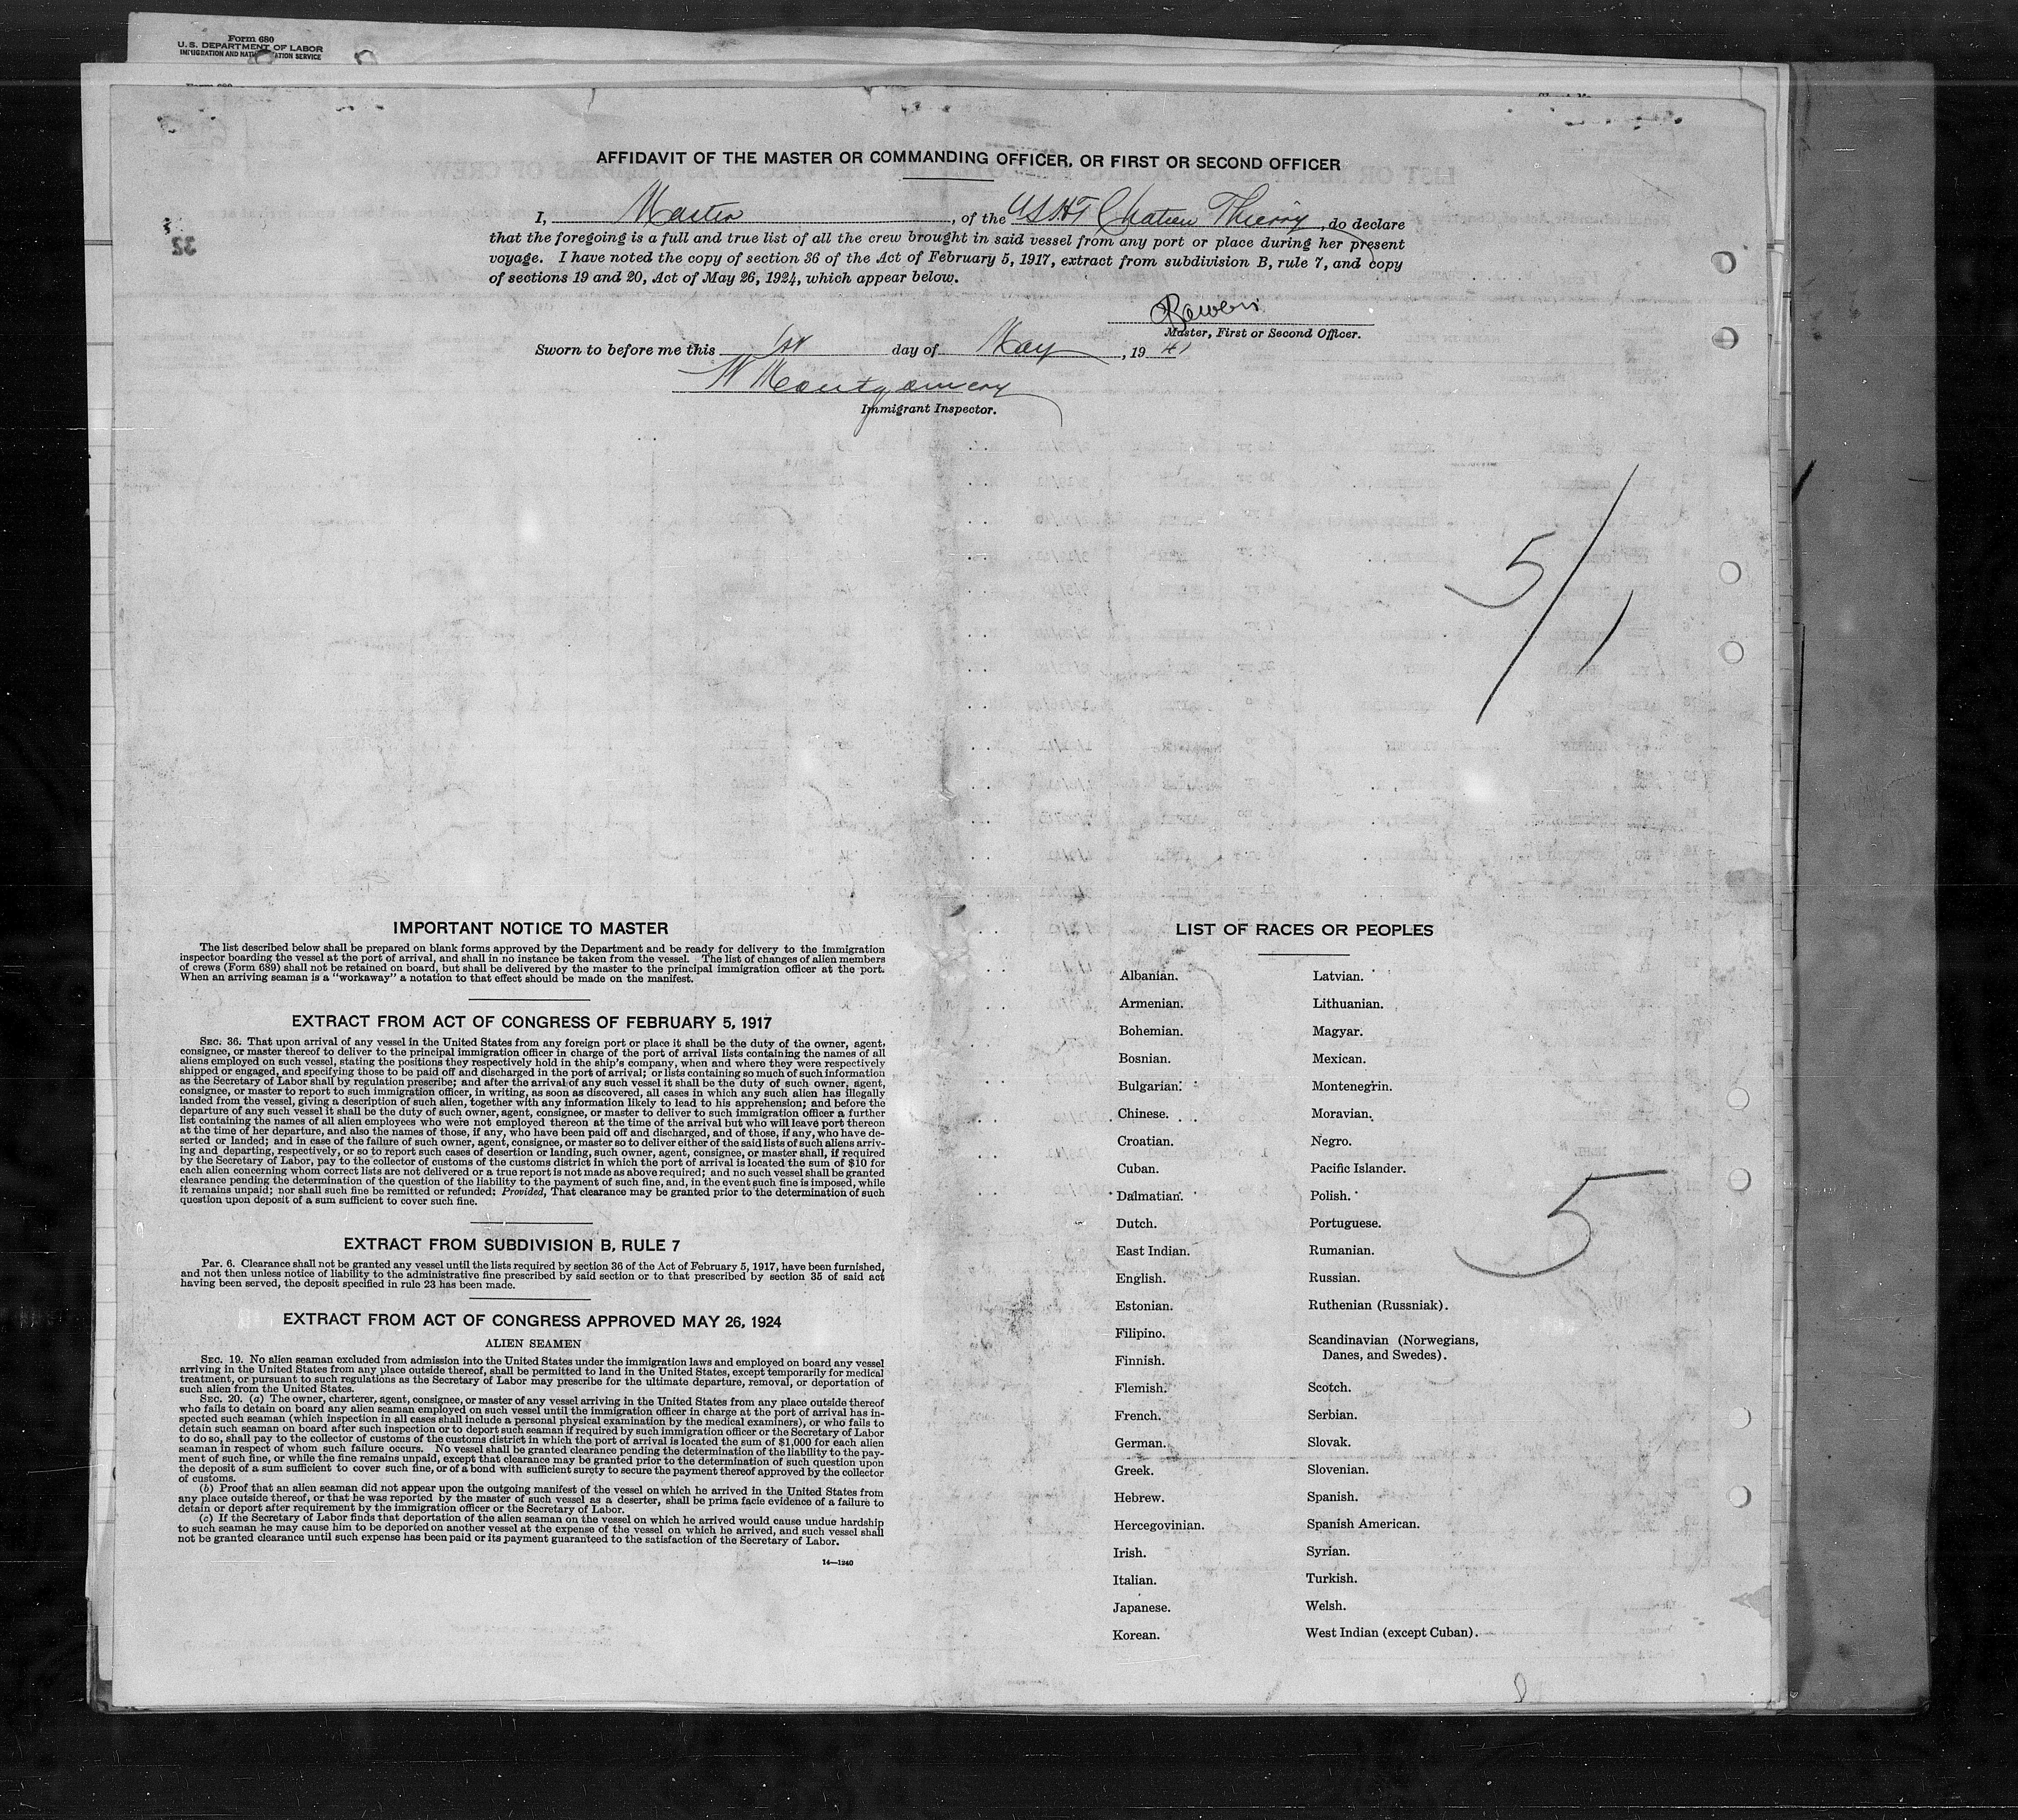 Form 680
U. S. DEPARTMENT OF LABOR
AFFIDAVIT OF THE MASTER OR COMMANDING OFFICER, OR FIRST OR SECOND OFFICER
I, Master, of the USAT Chateau Thierry, do declare
that the foregoing is a full and true list of all the crew brought in said vessel from any port or place during her present
voyage. I have noted the copy of section 36 of the Act of February 5, 1917, extract from subdivision B, rule 7, and copy
of sections 19 and 20, Act of May 26, 1924, which appear below.
Master, First or Second Officer.
Sworn to before me this 1st day of May, 1941
W Montgomery
Immigrant Inspector.
5/1
IMPORTANT NOTICE TO MASTER
The list described below shall be prepared on blank forms approved by the Department and be ready for delivery to the immigration
inspector boarding the vessel at the port of arrival, and shall in no instance be taken from the vessel. The list of changes of alien members
of crews (Form 689) shall not be retained on board, but shall be delivered by the master to the principal immigration officer at the port.
When an arriving seaman is a "workaway" a notation to that effect should be made on the manifest.
EXTRACT FROM ACT OF CONGRESS OF FEBRUARY 5, 1917
SEC. 36. That upon arrival of any vessel in the United States from any foreign port or place it shall be the duty of the owner, agent,
consignee, or master thereof to deliver to the principal immigration officer in charge of the port of arrival lists containing the names of all
aliens employed on such vessel, stating the positions they respectively hold in the ship's company, when and where they were respectively
shipped or engaged, and specifying those to be paid off and discharged in the port of arrival; or lists containing so much of such information
as the Secretary of Labor shall by regulation prescribe; and after the arrival of any such vessel it shall be the duty of such owner, agent,
consignee, or master to report to such immigration officer, in writing, as soon as discovered, all cases in which any such alien has illegally
landed from the vessel, giving a description of such alien, together with any information likely to lead to his apprehension; and before the
departure of any such vessel it shall be the duty of such owner, agent, consignee, or master to deliver to such immigration officer a further
list containing the names of all alien employees who were not employed thereon at the time of the arrival but who will leave port thereon
at the time of her departure, and also the names of those, if any, who have been paid off and discharged, and of those, if any, who have de-
serted or landed; and in case of the failure of such owner, agent, consignee, or master so to deliver either of the said lists of such aliens arriv-
ing and departing, respectively, or so to report such cases of desertion or landing, such owner, agent, consignee, or master shall, if required
by the Secretary of Labor, pay to the collector of customs of the customs district in which the port of arrival is located the sum of $10 for
each alien concerning whom correct lists are not delivered or a true report is not made as above required; and no such vessel shall be granted
clearance pending the determination of the question of the liability to the payment of such fine, and, in the event such fine is imposed, while
it remains unpaid; nor shall such fine be remitted or refunded: Provided, That clearance may be granted prior to the determination of such
question upon deposit of a sum sufficient to cover such fine.
EXTRACT FROM SUBDIVISION B, RULE 7
PAR. 6. Clearance shall not be granted any vessel until the lists required by section 36 of the Act of February 5, 1917, have been furnished,
and not then unless notice of liability to the administrative fine prescribed by said section or to that prescribed by section 35 of said act
having been served, the deposit specified in rule 23 has been made.
EXTRACT FROM ACT OF CONGRESS APPROVED MAY 26, 1924
ALIEN SEAMEN
SEC. 19. No alien seaman excluded from admission into the United States under the immigration laws and employed on board any vessel
arriving in the United States from any place outside thereof, shall be permitted to land in the United States, except temporarily for medical
treatment, or pursuant to such regulations as the Secretary of Labor may prescribe for the ultimate departure, removal, or deportation of
such alien from the United States.
SEC. 20. (a) The owner, charterer, agent, consignee, or master of any vessel arriving in the United States from any place outside thereof
who fails to detain on board any alien seaman employed on such vessel until the immigration officer in charge at the port of arrival has in-
spected such seaman (which inspection in all cases shall include a personal physical examination by the medical examiners), or who fails to
detain such seaman on board after such inspection or to deport such seaman if required by such immigration officer or the Secretary of Labor
to do so, shall pay to the collector of customs of the customs district in which the port of arrival is located the sum of $1,000 for each alien
seaman in respect of whom such failure occurs. No vessel shall be granted clearance pending the determination of the liability to the pay-
ment of such fine, or while the fine remains unpaid, except that clearance may be granted prior to the determination of such question upon
the deposit of a sum sufficient to cover such fine, or of a bond with sufficient surety to secure the payment thereof approved by the collector
of customs.
(b) Proof that an alien seaman did not appear upon the outgoing manifest of the vessel on which he arrived in the United States from
any place outside thereof, or that he was reported by the master of such vessel as a deserter, shall be prima facie evidence of a failure to
detain or deport after requirement by the immigration officer or the Secretary of Labor.
(c) If the Secretary of Labor finds that deportation of the alien seaman on the vessel on which he arrived would cause undue hardship
to such seaman he may cause him to be deported on another vessel at the expense of the vessel on which he arrived, and such vessel shall
not be granted clearance until such expense has been paid or its payment guaranteed to the satisfaction of the Secretary of Labor.
14—1240
LIST OF RACES OR PEOPLES
Albanian.
Armenian.
Bohemian.
Bosnian.
Bulgarian.
Chinese.
Croatian.
Cuban.
Dalmatian.
Dutch.
East Indian.
English.
Estonian.
Filipino.
Finnish.
Flemish.
French.
German.
Greek.
Hebrew.
Hercegovinian.
Irish.
Italian.
Japanese.
Korean.
Latvian.
Lithuanian.
Magyar.
Mexican.
Montenegrin.
Moravian.
Negro.
Pacific Islander.
Polish.
Portuguese.
Rumanian.
Russian.
Ruthenian (Russniak).
Scandinavian (Norwegians,
Danes, and Swedes).
Scotch.
Serbian.
Slovak.
Slovenian.
Spanish.
Spanish American.
Syrian.
Turkish.
Welsh.
West Indian (except Cuban).
5